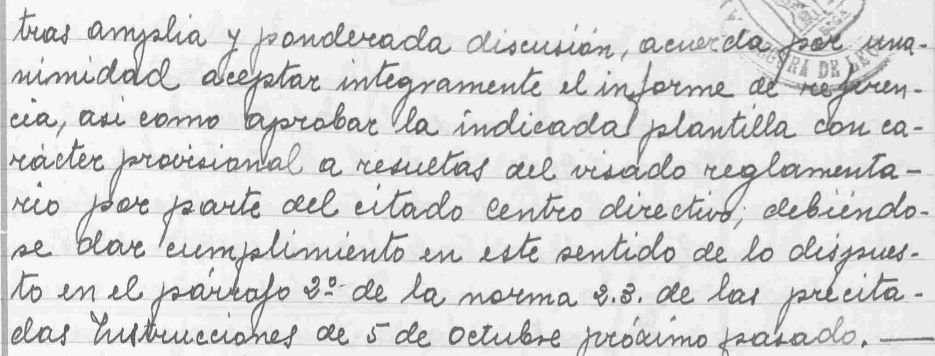 tras amplia y ponderada discusión, acuerda por una-
nimidad aceptar integramente el informe de referen-
cia, asi como aprobar la indicada plantilla con ca-
rácter provisional a resueltas del visado reglamenta-
rio por parte del citado Centro directivo; debiéndo-
se dar cumplimiento en este sentido de lo dispues-
to en el párrafo 2º de la norma 2.3. de las precita-
das Instrucciones de 5 de Octubre próximo pasado. —